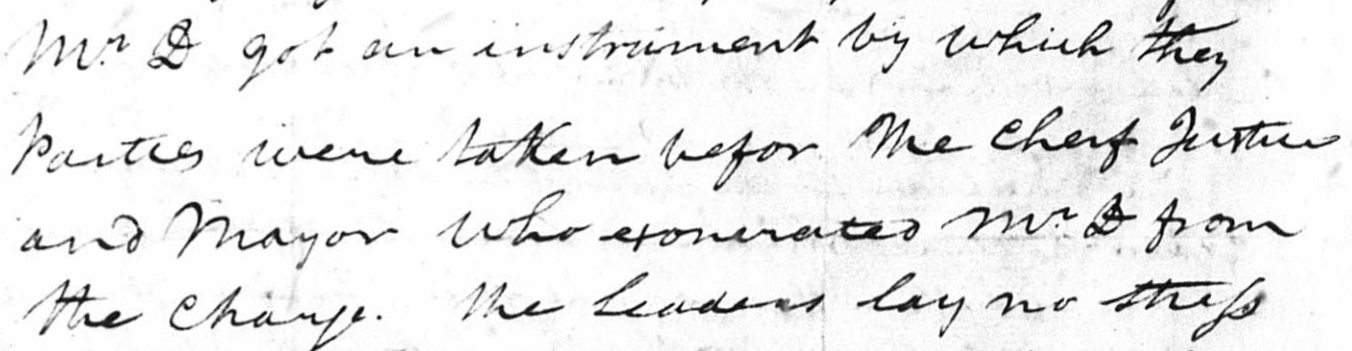 Mr. D got an instrument by which they
Parties were taken befor the Cheif Justice
and Mayor who exonerated Mr D from
the Charge. The Leaders lay no stress